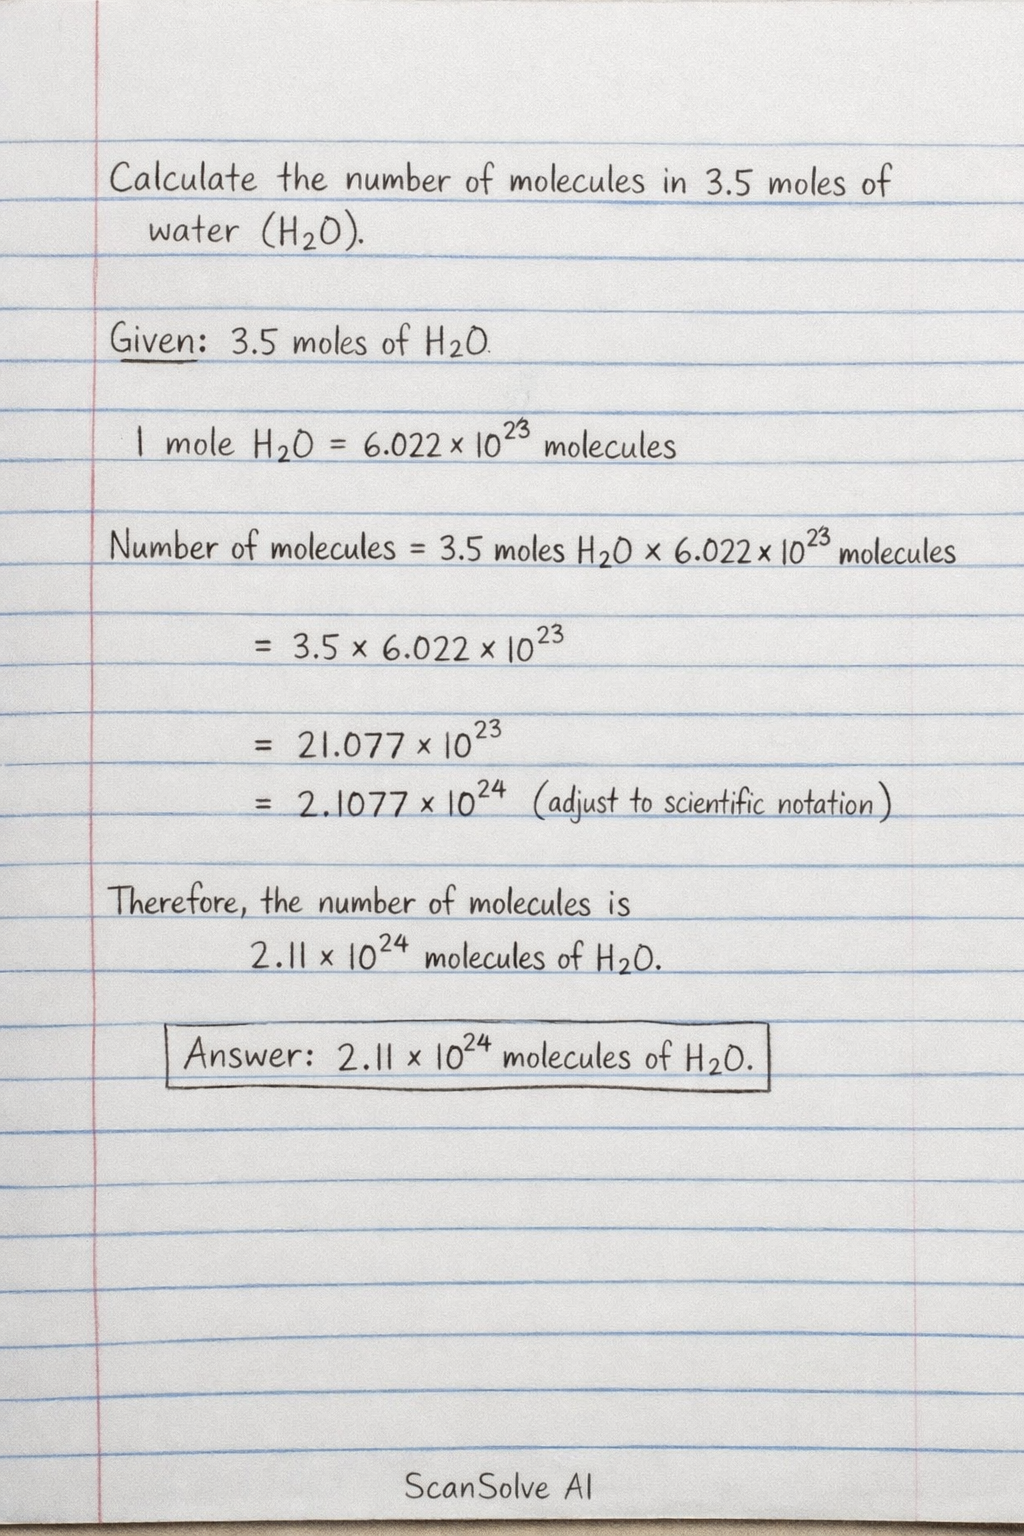 Calculate the number of molecules in 3.5 moles of
water (H₂O).
Given: 3.5 moles of H₂O.
1 mole H₂O = 6.022 × 10²³ molecules
Number of molecules = 3.5 moles H₂O × 6.022 × 10²³ molecules
= 3.5 × 6.022 × 10²³
= 21.077 × 10²³
= 2.1077 × 10²⁴ (adjust to scientific notation)
Therefore, the number of molecules is
2.11 × 10²⁴ molecules of H₂O.
Answer: 2.11 × 10²⁴ molecules of H₂O.
ScanSolve AI